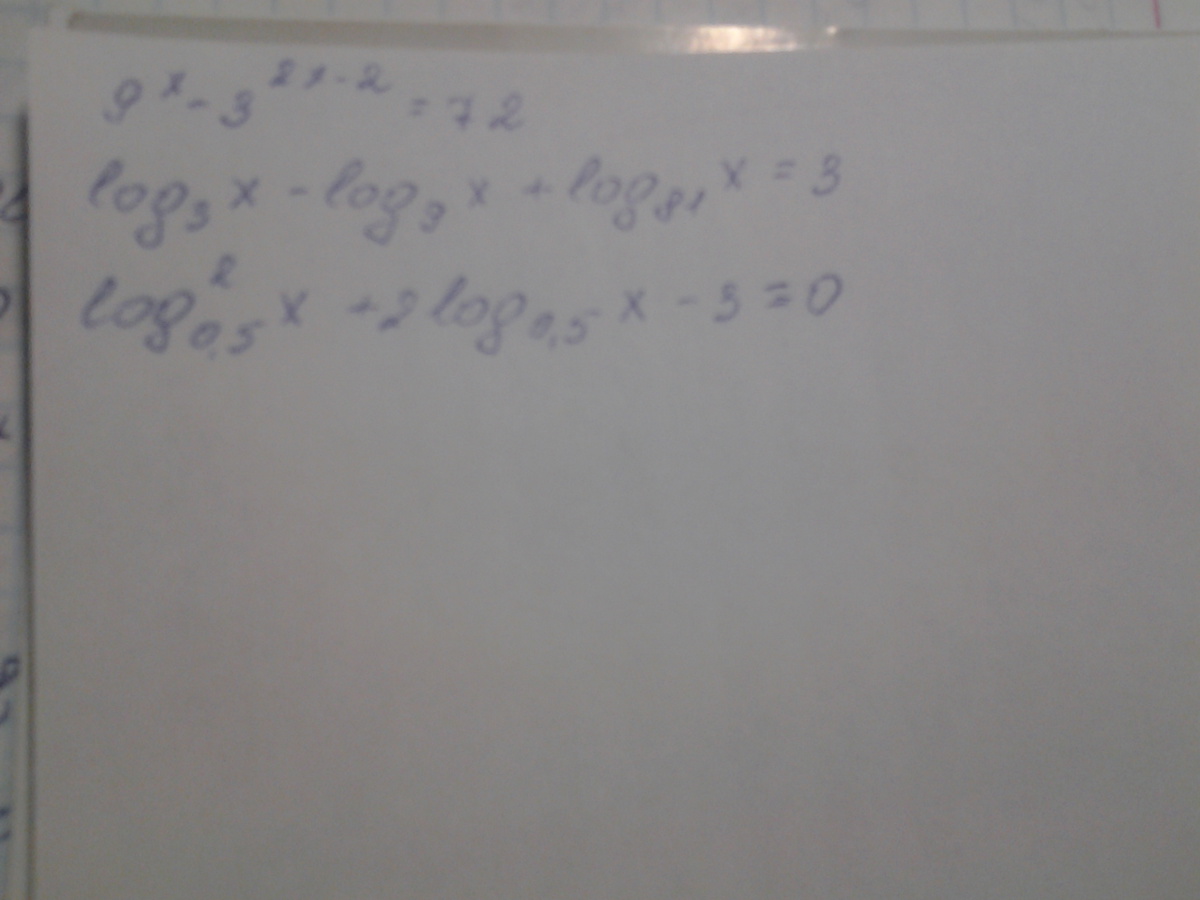 9^x - 3^{2x-2} = 72
log_3 x - log_9 x + log_{81} x = 3
log^2_{0,5} x + 2 log_{0,5} x - 3 = 0